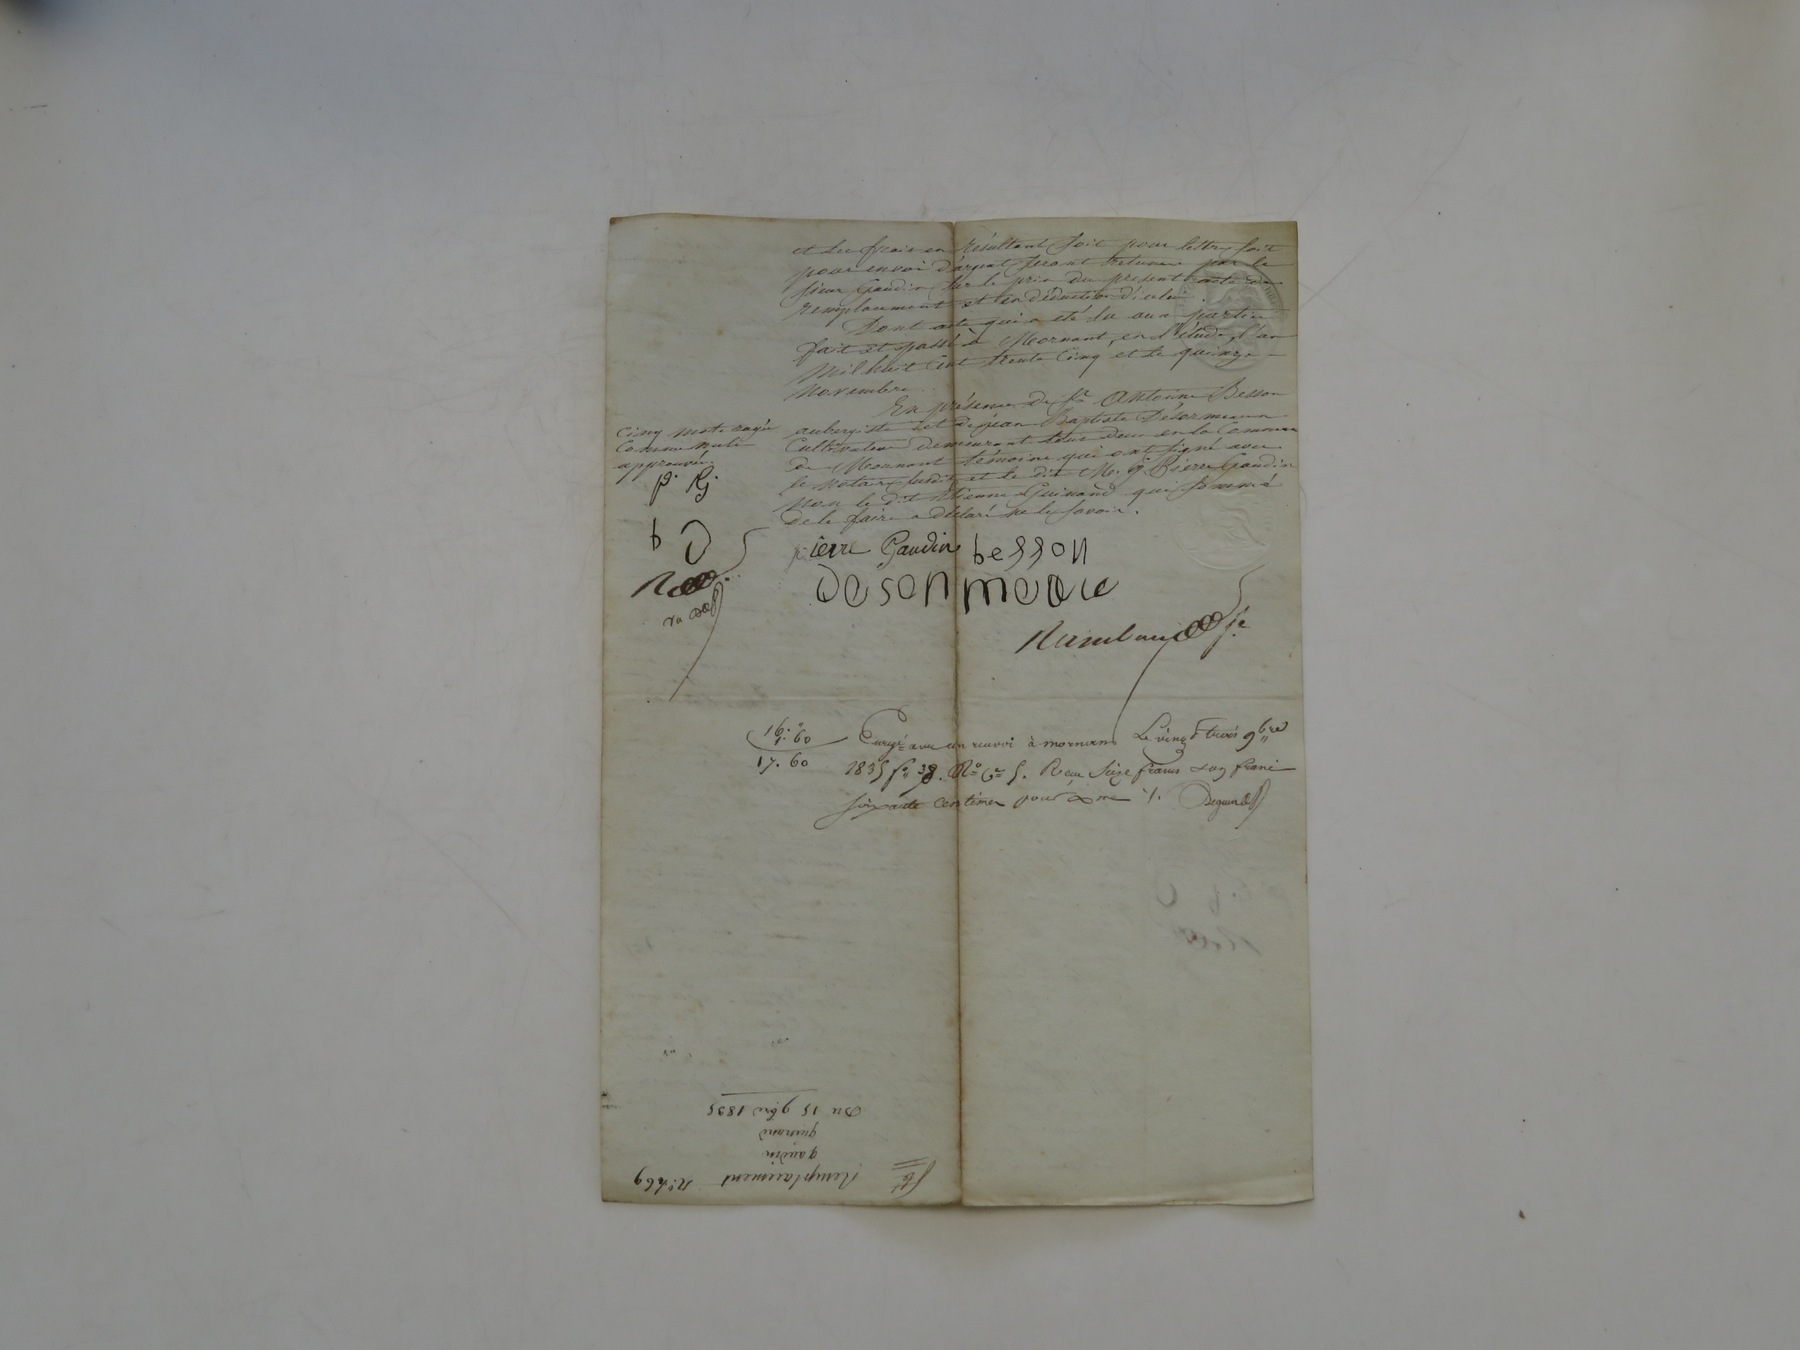 et les frais en résultant soit pour lettres soit
pour envoi d'argent seront retenus par le
sieur Gaudin sur le prix du present acte de
remplacement et en déduction d'icelui.
Dont acte qui a été lu aux parties
fait et passé à Mornant, en l'étude, l'an
mil huit cent trente cinq et le quinze
novembre
En présence de Sr Antoine Besson
aubergiste et de jean Baptiste Désormeaux
Cultivateur demeurant tous deux en la Commune
de Mornant témoins qui ont signé avec
le Notaire susdit et le dit Pierre Gaudin
non le dit Etienne Guinand qui sommé
de le faire a déclaré ne le savoir.
cinq mots rayés
comme nuls
approuvés
p. g.
b D
pierre Gaudin besson
Desormeaux
16. 60
17. 60
à mornant Le vingt trois 9bre
1835 fo 38. Ro Ce 5. Reçu Seize francs un franc
soixante centimes pour
Remplacement No 469
gaudin
guinand
Du 15 9bre 1835